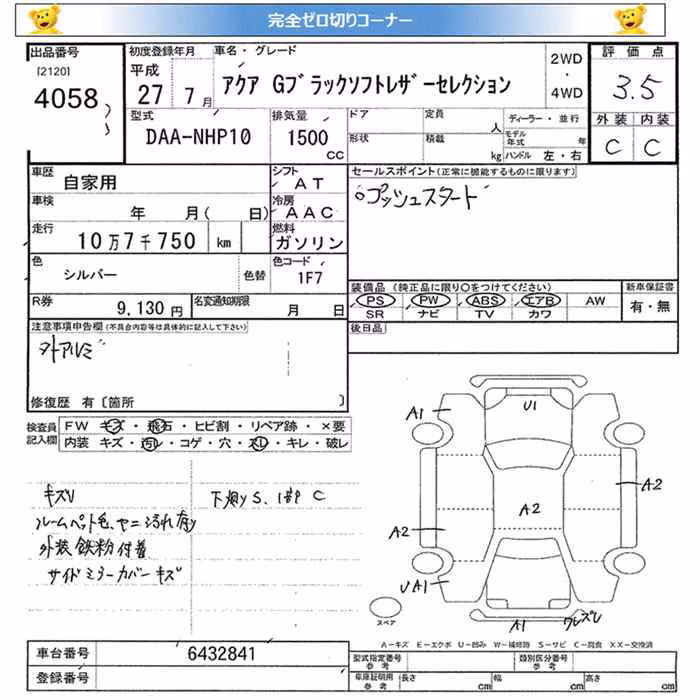 完全ゼロ切りコーナー
出品番号
[2120]
4058
初度登録年月
平成
27 7月
車名・グレード
アクア Gブラックソフトレザーセレクション
2WD
・
4WD
評価点
3.5
外装 内装
C C
型式
DAA-NHP10
排気量
1500
CC
ドア
定員
人
形状
積載
kg
ディーラー・並行
モデル年式
年
ハンドル 左・右
車歴
自家用
シフト
AT
車検
年 月( 日)
冷房
AAC
走行
10万7千750 km
燃料
ガソリン
色
シルバー
色替
色コード
1F7
R券
9,130円
名変通知期限
月 日
セールスポイント(正常に機能するものに限ります)
プッシュスタート
装備品 (純正品に限り〇をつけてください)
PS PW ABS エアB AW
SR ナビ TV カワ
新車保証書
有・無
後日品
注意事項申告欄(不具合内容等は具体的に記入して下さい)
外アルミ
修復歴 有〔箇所 〕
検査員記入欄
FW キズ・飛石・ヒビ割・リペア跡・×要
内装 キズ・汚レ・コゲ・穴・スレ・キレ・破レ
キズU
ルームペット毛、ヤニ汚れ有り
外装鉄粉付着
サイドミラーカバーキズ
下廻りS、1部C
A1
U1
A2
A2
A2
UA1
A1
スペア
A-キズ E-エクボ U-凹み W-補修跡 S-サビ C-腐食 XX-交換済
車台番号
6432841
登録番号
型式指定番号
参考
類別区分番号
参考
車庫証明用
参考
長さ cm
幅 cm
高さ cm